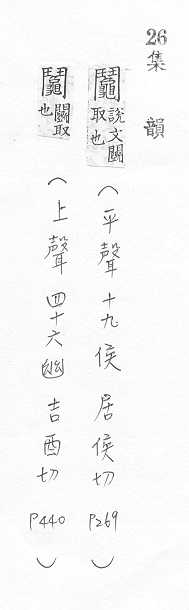 26
集韻
鬮 說文鬭取也 （平聲 十九侯 居侯切 P269）
鬮 鬭取也 （上聲 四十六幽 吉酉切 P440）